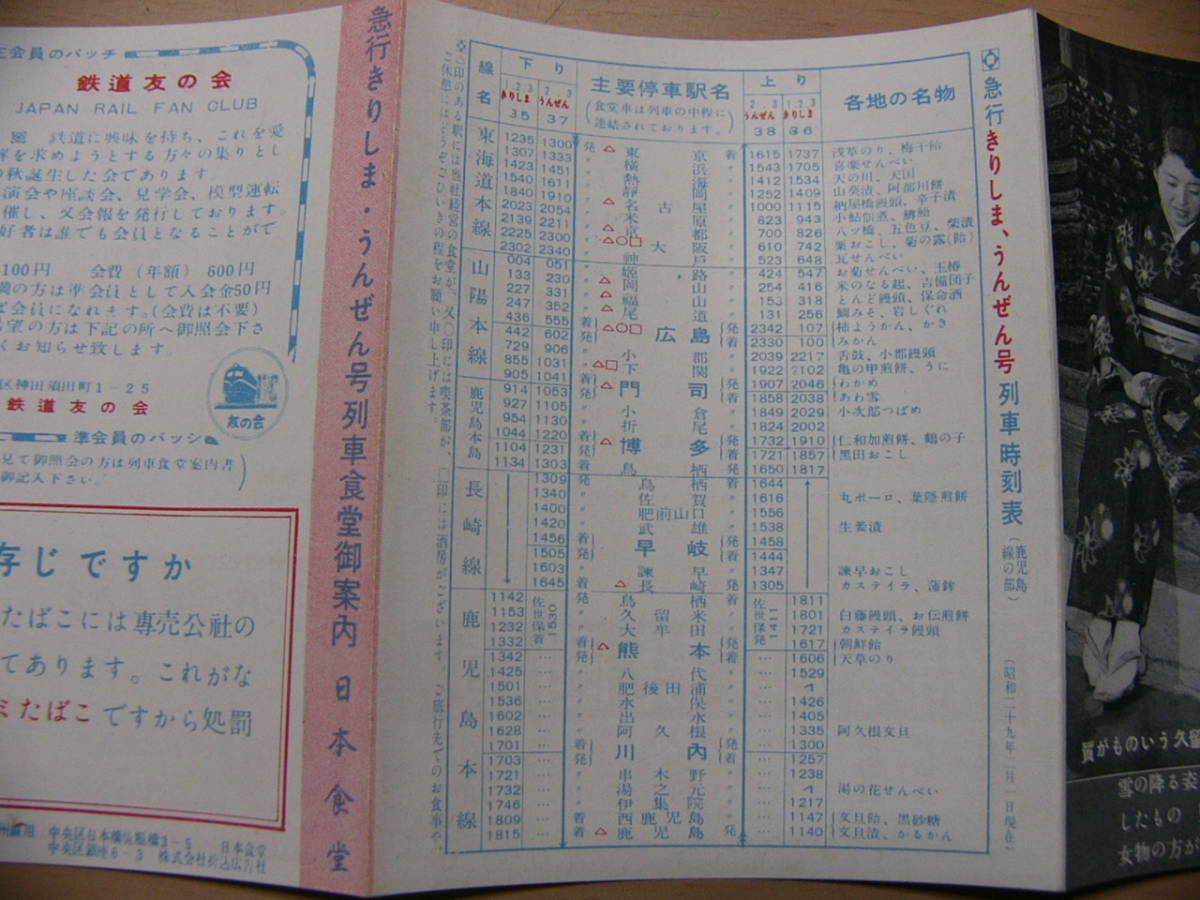 正会員のバッチ
鉄道友の会
JAPAN RAIL FAN CLUB
鉄道に興味を持ち、これを愛
を求めようとする方々の集りとし
の秋誕生した会であります。
演会や座談会、見学会、模型運転
催し、又会報を発行しております。
好者は誰でも会員となることがで
100円 会費(年額) 600円
の方は準会員として入会金50円
ば会員になれます。(会費は不要)
希望の方は下記の所へ御照会下さ
くお知らせ致します。
区神田須田町1-25
鉄道友の会
友の会
準会員のバッジ
見て御照会の方は列車食堂案内書
御記入下さい。
存じですか
たばこには専売公社の
てあります。これがな
ミたばこですから処罰
中央区日本橋呉服橋3-5 日本食堂
中央区銀座6-3 株式会社折込広告社
急行きりしま・うんぜん号列車食堂御案内 日本食堂
△印のある駅には当社経営の食堂が、又〇印には喫茶部が、□印には酒房がございます。ご旅行先でのお食事や、
ご休憩にはどうぞごひいきの程をお願い申し上げます。
急行きりしま、うんぜん号列車時刻表(鹿児島線の部)(昭和二十九年二月一日現在)
線名 下り 主要停車駅名 上り 各地の名物
1.2.3 きりしま 35 2.3 うんぜん 37 (食堂車は列車の中程に連結されております。) 2.3 うんぜん 38 1.2.3 きりしま 36
東海道本線
1235 1300 発 △ 東京 着 1615 1737 浅草のり、梅干飴
1307 1333 〃 横浜 〃 1543 1705 喜楽せんべい
1423 1451 〃 熱海 〃 1412 1534 天の川、大国
1540 1611 〃 静岡 〃 1252 1409 山葵漬、阿部川餅
1840 1910 〃 △ 名古屋 〃 1000 1115 納屋橋饅頭、辛子漬
2023 2054 〃 米原 〃 823 943 小鮎佃煮、鱒鮨
2139 2211 〃 △ 京都 〃 700 826 八ッ橋、五色豆、柴漬
2225 2300 〃 △〇□ 大阪 〃 610 742 粟おこし、菊の露(飴)
2302 2340 〃 神戸 〃 523 648 瓦せんべい
山陽本線
004 051 〃 姫路 〃 424 547 お菊せんべい、玉椿
133 230 〃 △ 岡山 〃 254 416 米のなる起、吉備団子
227 331 〃 △ 福山 〃 153 318 とんど饅頭、保命酒
247 352 〃 △ 尾道 〃 131 256 鯛みそ、岩しぐれ
436 555 着 △〇□ 広島 発 2342 107 柿ようかん、かき
442 602 発 着 2330 100 みかん
729 906 〃 小郡 〃 2039 2217 舌鼓、小郡饅頭
855 1031 〃 △□ 下関 〃 1922 2102 亀の甲煎餅、うに
905 1041 着 △ 門司 発 1907 2046 わかめ
鹿児島本島
914 1053 発 着 1858 2038 あわ雪
927 1105 〃 小倉 〃 1849 2029 小次郎つばめ
954 1130 〃 折尾 〃 1824 2002
1044 1220 着 △ 博多 発 1732 1910 仁和加煎餅、鶴の子
1104 1231 発 着 1721 1857 黒田おこし
1134 1303 着 鳥栖 〃 1650 1817
長崎線
1309 発 鳥栖 着 1644
1340 〃 佐賀 〃 1616 丸ボーロ、葉隠煎餅
1400 〃 肥前山口 〃 1556
1420 〃 武雄 〃 1538 生姜漬
1456 着 早岐 発 1458
1505 発 着 1444
1603 〃 諫早 〃 1347 諫早おこし
1645 着 △ 長崎 発 1305 カステイラ、蒲鉾
鹿児島本線
佐世保着 1530 佐世保発 1411
1142 発 鳥栖 着 1811
1153 〃 久留米 〃 1801 白藤饅頭、お伝煎餅
1232 〃 大牟田 〃 1721 カステイラ饅頭
1332 着 △ 熊本 発 1617 朝鮮飴
1342 … 発 着 … 1606 天草のり
1425 … 〃 八代 〃 … 1529
1501 … 〃 肥後田浦 〃 …
1536 … 〃 水俣 〃 … 1426
1602 … 〃 出水 〃 … 1405
1628 … 〃 阿久根 〃 … 1335 阿久根文旦
1701 … 着 川内 発 … 1300
1703 … 発 着 … 1257
1721 … 〃 串木野 〃 … 1238
1732 … 〃 湯之元 〃 … 湯の花せんべい
1746 … 〃 伊集院 〃 … 1217
1809 … 〃 西鹿児島 〃 … 1147 文旦飴、黒砂糖
1815 … 着 △ 鹿児島 発 … 1140 文旦漬、かるかん
質がものいう久留
雪の降る
したもの
女物の方が